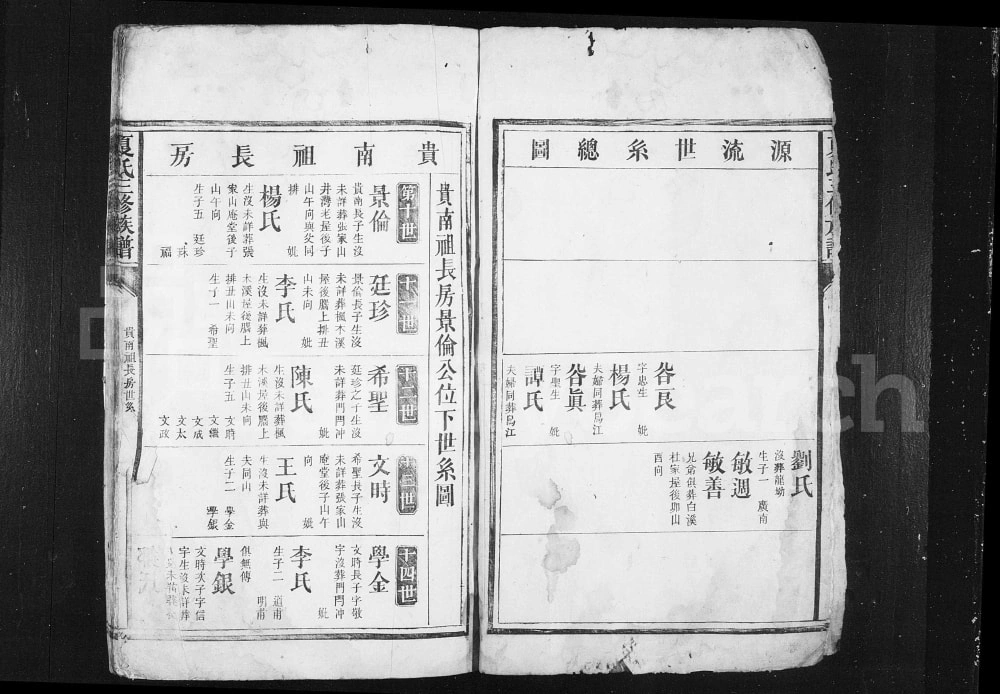 源流世系總圖
咎長
字忠生
妣
楊氏
夫婦同葬烏江
咎眞
字聖生
妣
譚氏
夫婦同葬烏江
劉氏
沒葬龍坳
生子一
廣南
敏週
敏善
兄弟俱葬白溪
杜家屋後卯山
酉向
貴南祖長房
貴南祖長房景倫公位下世系圖
第十世
景倫
貴南長子生沒
未詳葬張家山
井灣老屋後子
山午向與父同
排
妣
楊氏
生沒未詳葬張
家山庵堂後子
山午向
生子五
廷珍
珠
福
十一世
廷珍
景倫長子生沒
未詳葬楓木溪
屋後騰上排丑
山未向
妣
李氏
生沒未詳葬楓
木溪屋後騰上
排丑山未向
生子一
希聖
十二世
希聖
廷珍之子生沒
未詳葬門門冲
妣
陳氏
生沒未詳葬楓
木溪屋後騰上
排丑山未向
生子五
文時
文繼
文成
文太
文政
十三世
文時
希聖長子生沒
未詳葬張家山
庵堂後子山午
向
妣
王氏
生沒未詳葬與
夫同山
生子二
學金
學銀
十四世
學金
文時長子字敬
宇沒葬門門冲
妣
李氏
生子二
道甫
明甫
俱無傳
學銀
文時次子字信
宇生沒未詳葬
夏氏三修族譜
貴南祖長房世系